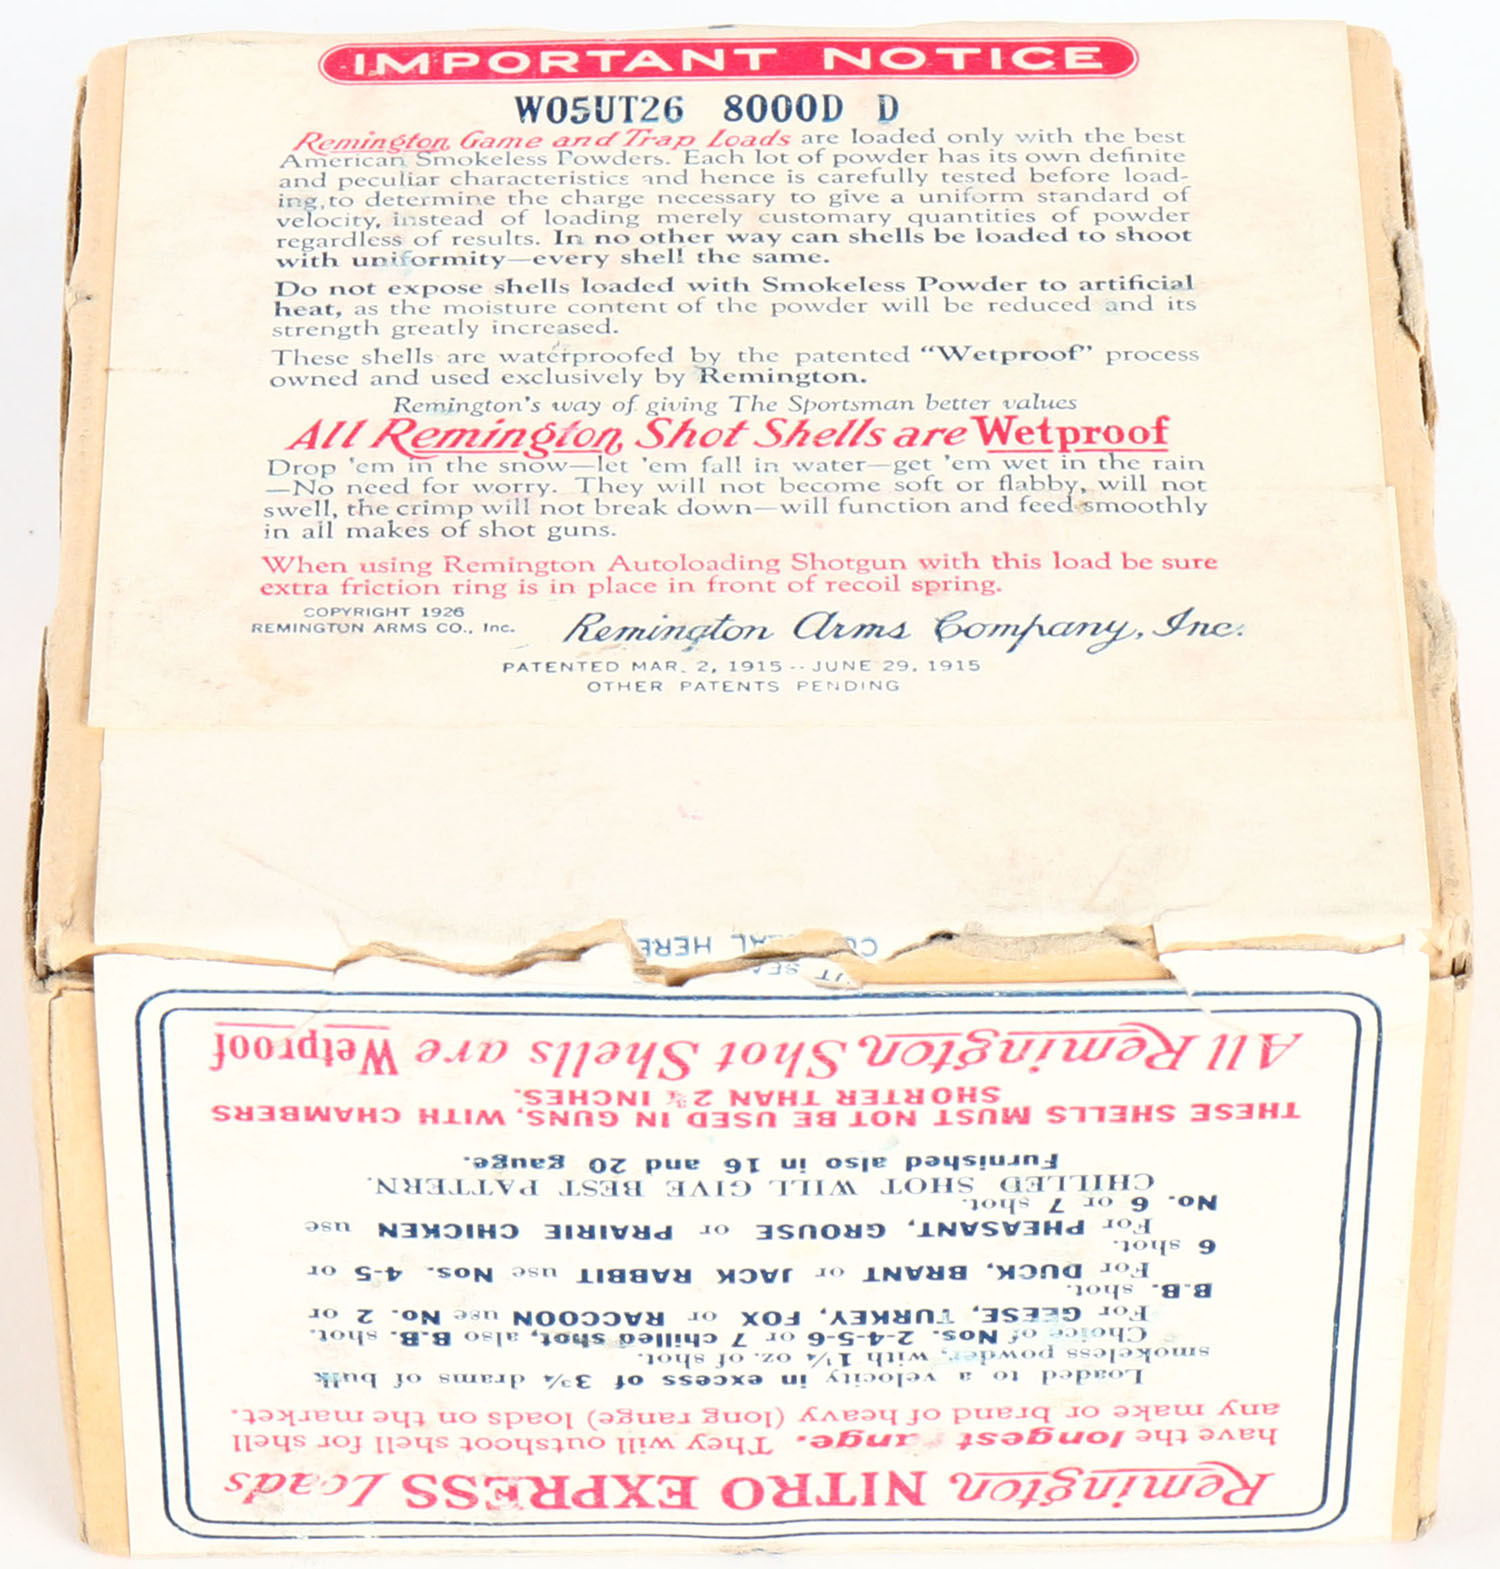 IMPORTANT NOTICE
W05UT26 8000D D
Remington Game and Trap Loads are loaded only with the best
American Smokeless Powders. Each lot of powder has its own definite
and peculiar characteristics and hence is carefully tested before load-
ing, to determine the charge necessary to give a uniform standard of
velocity, instead of loading merely customary quantities of powder
regardless of results. In no other way can shells be loaded to shoot
with uniformity—every shell the same.
Do not expose shells loaded with Smokeless Powder to artificial
heat, as the moisture content of the powder will be reduced and its
strength greatly increased.
These shells are waterproofed by the patented "Wetproof" process
owned and used exclusively by Remington.
Remington's way of giving The Sportsman better values
All Remington Shot Shells are Wetproof
Drop 'em in the snow—let 'em fall in water—get 'em wet in the rain
—No need for worry. They will not become soft or flabby, will not
swell, the crimp will not break down—will function and feed smoothly
in all makes of shot guns.
When using Remington Autoloading Shotgun with this load be sure
extra friction ring is in place in front of recoil spring.
COPYRIGHT 1926
REMINGTON ARMS CO., Inc.
Remington Arms Company, Inc.
PATENTED MAR. 2, 1915 -- JUNE 29, 1915
OTHER PATENTS PENDING
Remington NITRO EXPRESS Loads
have the longest range. They will outshoot shell for shell
any make or brand of heavy (long range) loads on the market.
Loaded to a velocity in excess of 3¾ drams of bulk
smokeless powder, with 1¼ oz. of shot.
Choice of Nos. 2-4-5-6 or 7 chilled shot, also B.B. shot.
For GEESE, TURKEY, FOX or RACCOON use No. 2 or
B.B. shot.
For DUCK, BRANT or JACK RABBIT use Nos. 4-5 or
6 shot.
For PHEASANT, GROUSE or PRAIRIE CHICKEN use
No. 6 or 7 shot.
CHILLED SHOT WILL GIVE BEST PATTERN.
Furnished also in 16 and 20 gauge.
THESE SHELLS MUST NOT BE USED IN GUNS, WITH CHAMBERS
SHORTER THAN 2¾ INCHES.
All Remington Shot Shells are Wetproof
HERE